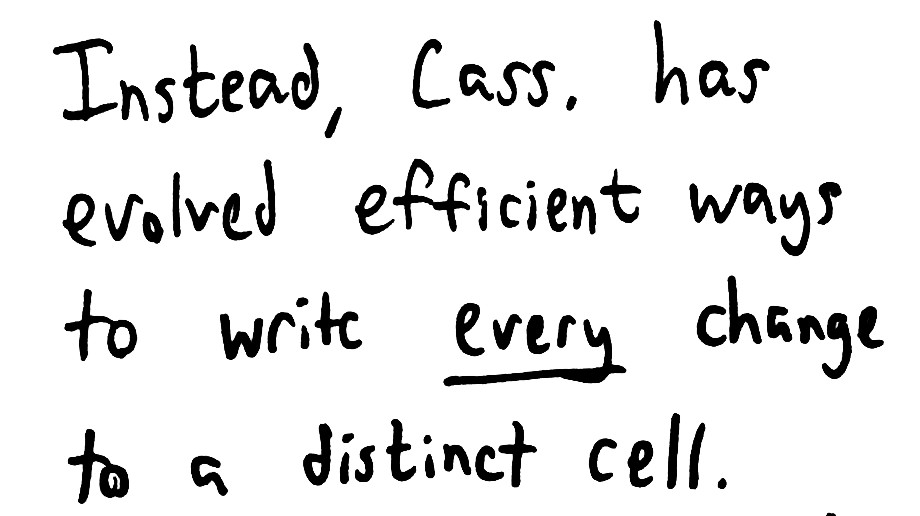 Instead, Cass. has
evolved efficient ways
to write every change
to a distinct cell.